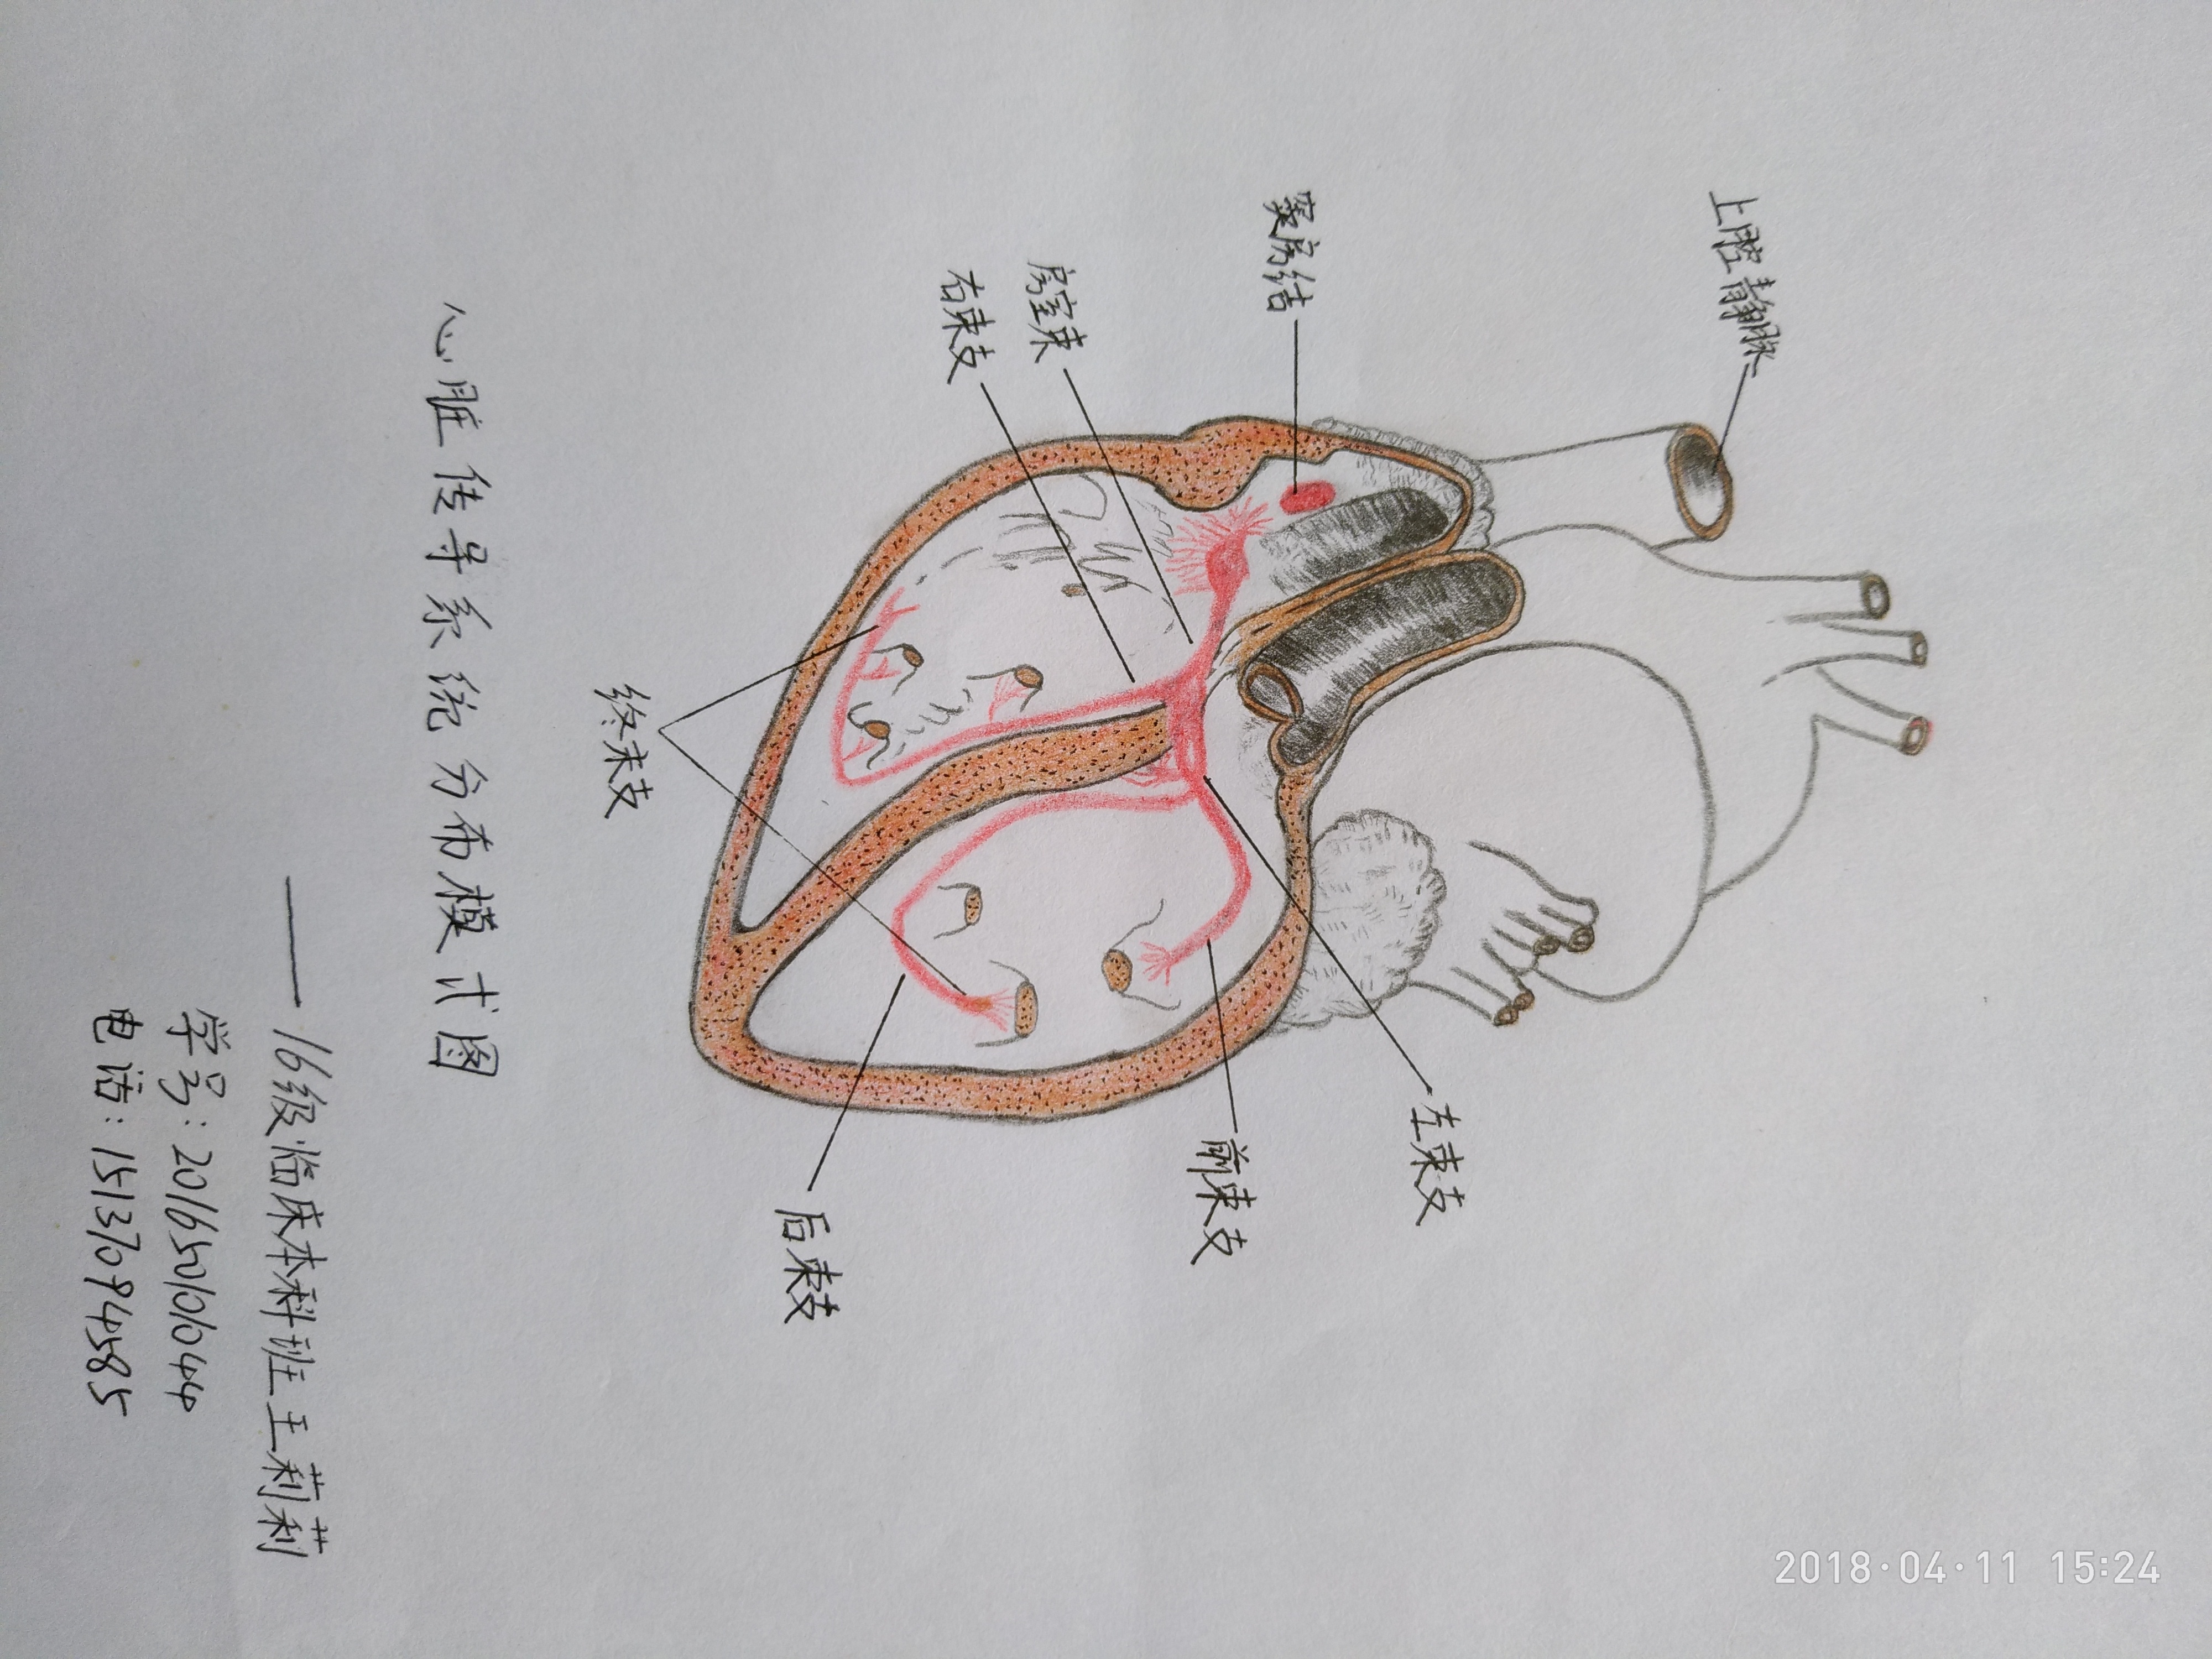 上腔静脉
窦房结
房室束
右束支
左束支
前束支
后束支
终末支
心脏传导系统分布模式图
——16级临床本科班王莉莉
学号:201650101044
电话:15137094585
2018·04·11 15:24